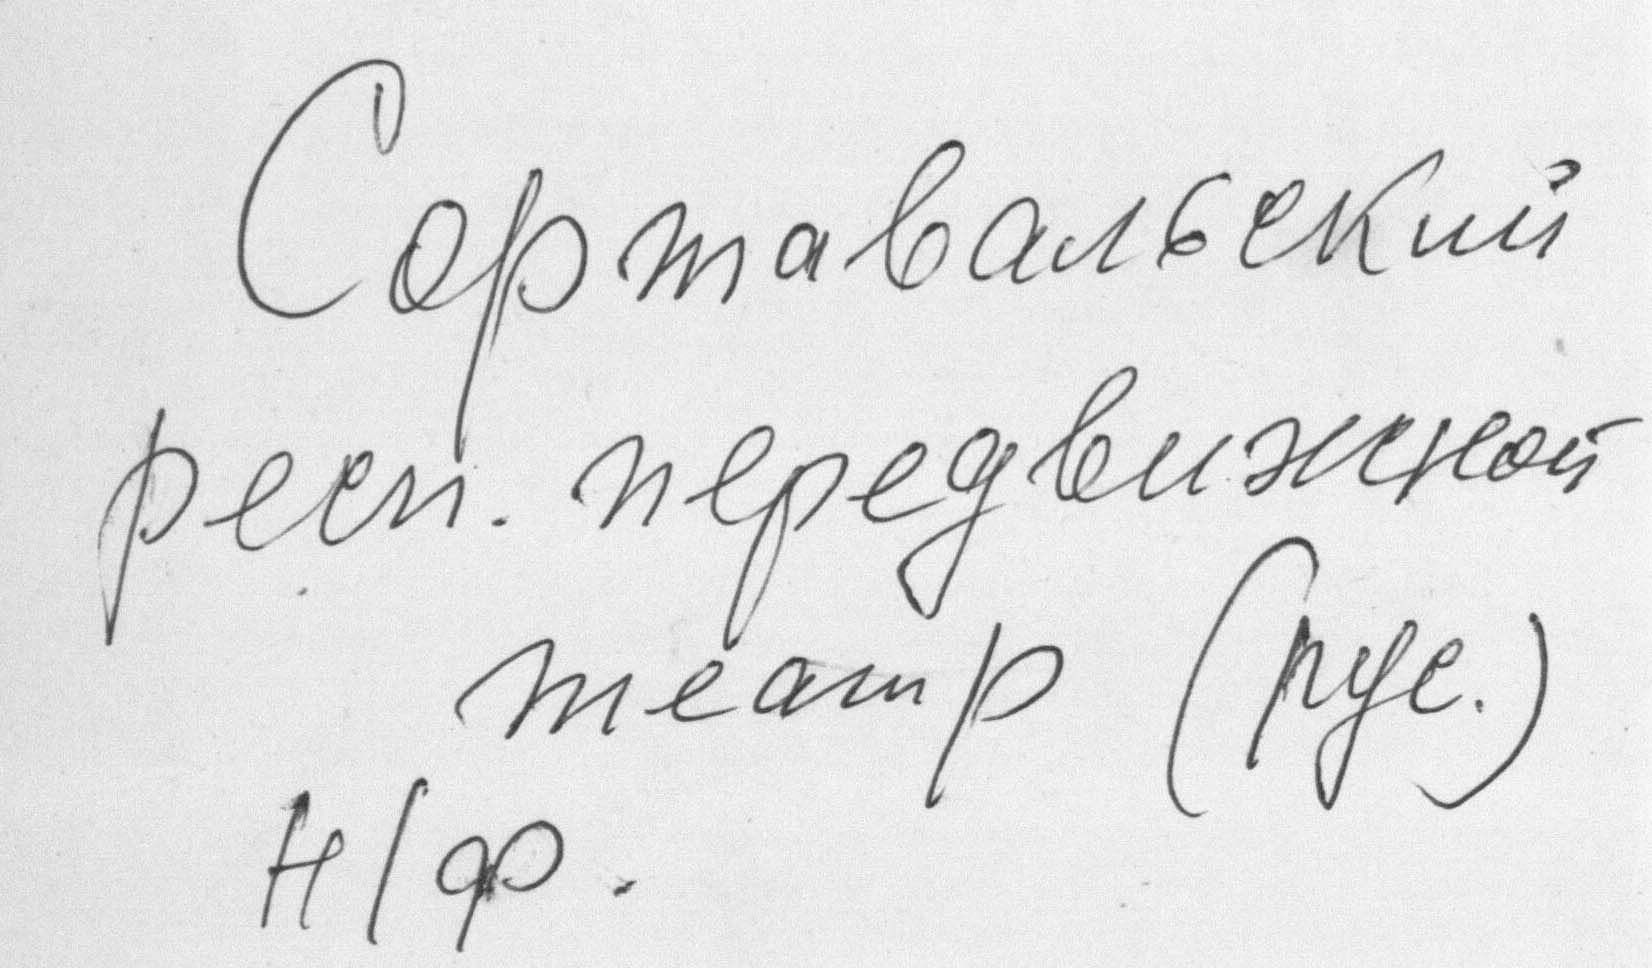 Сортавальский
респ. передвижной
театр (рус.)
н/ф.